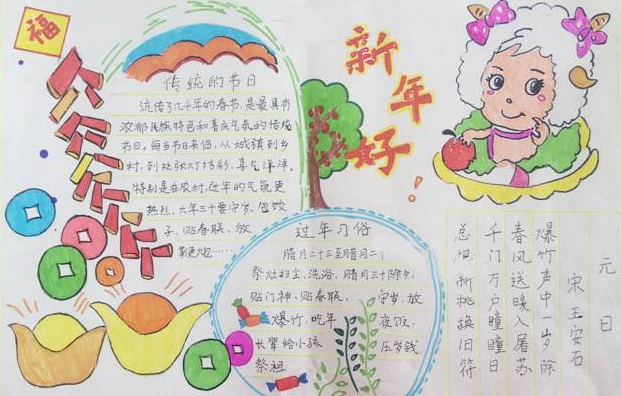 福
新年好!
传统的节日
流传了几千年的春节,是最具有
浓郁民族特色和喜庆气氛的传统
节日。每当节日来临,从城镇到乡
村,到处张灯结彩,喜气洋洋。
特别是在农村,过年的气氛更
热烈、大年三十要守岁、包饺
子、贴春联、放
过年习俗
腊月二十三至腊月二
祭灶扫尘、洗浴、腊月三十除夕,
贴门神、贴春联、 守岁、放
爆竹,吃年 夜饭,
长辈给小孩 压岁钱
祭祖
元日
宋 王安石
爆竹声中一岁除
春风送暖入屠苏
千门万户曈曈日
总把新桃换旧符